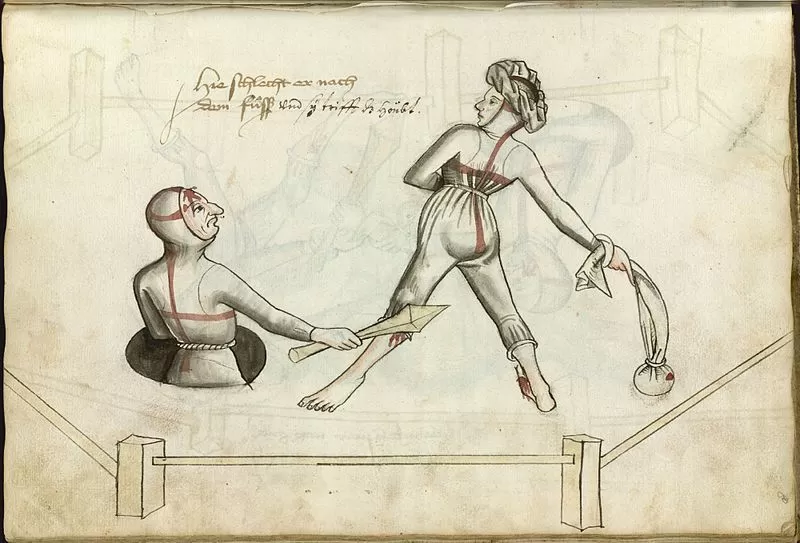 Hie schlecht er nach
dem fuͦß vnd sy trifft dz Houbt.